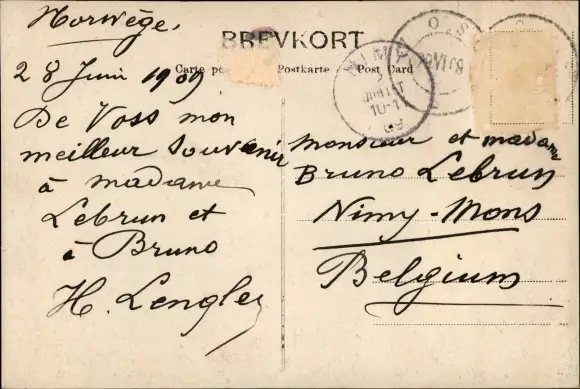 Norwège,
BREVKORT
Carte po
Postkarte
Post Card
28 Juin 1909
De Voss mon
meilleur souvenir
à madame
Lebrun et
à Bruno
H. Lengley
Monsieur et madame
Bruno Lebrun
Nimy-Mons
Belgium
NIMY
10-11
09